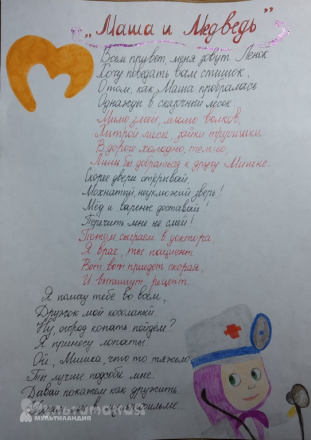 „Маша и Медведь"
Всем привет, меня зовут Ленок
Хочу поведать вам стишок,
О том, как Маша пробралась
Однажды в сказочный лесок.
Мимо змеи, мимо волков,
Хитрой лисы, зайки трусишки.
В дороге холодно, темно,
Лишь бы добраться к другу Мишке.
Скорее двери открывай
Мохнатый, неуклюжий зверь!
Мёд и варенье доставай!
Перечить мне не смей!
Потом сыграем в доктора,
Я врач, ты пациент.
Вот вот приедет скорая,
И выпишут рецепт.
Я помогу тебе во всём,
Дружок мой косолапый.
Ну огород копать пойдём?
Я принесу лопаты.
Ой, Мишка, что-то тяжело,
Ты лучше подсоби мне.
Давай покажем как дружить
в мультфильме.
Мультимания
МУЛЬТИЛАНДИЯ